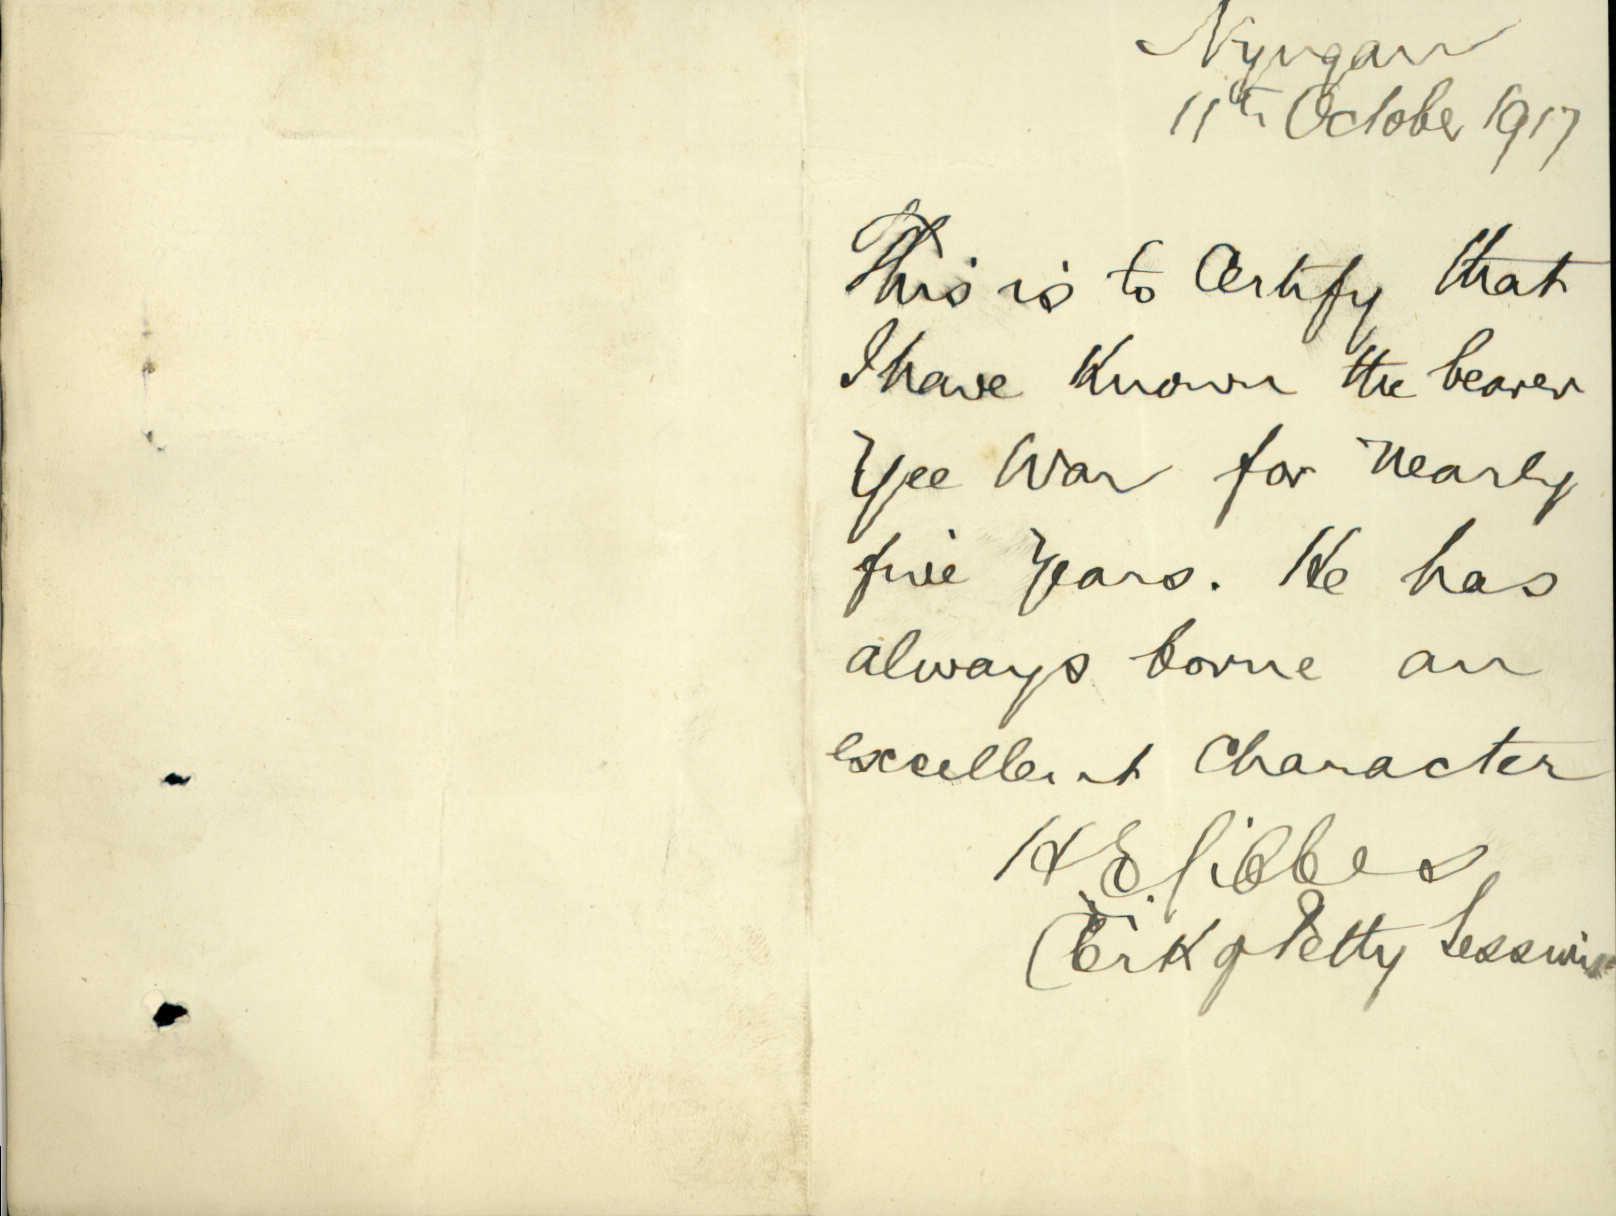 Nyngan
11th October 1917
This is to Certify that
I have Known the bearer
Yee War for Nearly
five Years. He has
always borne an
excellent Character
H E Gibbes
Clerk of Petty Sessions